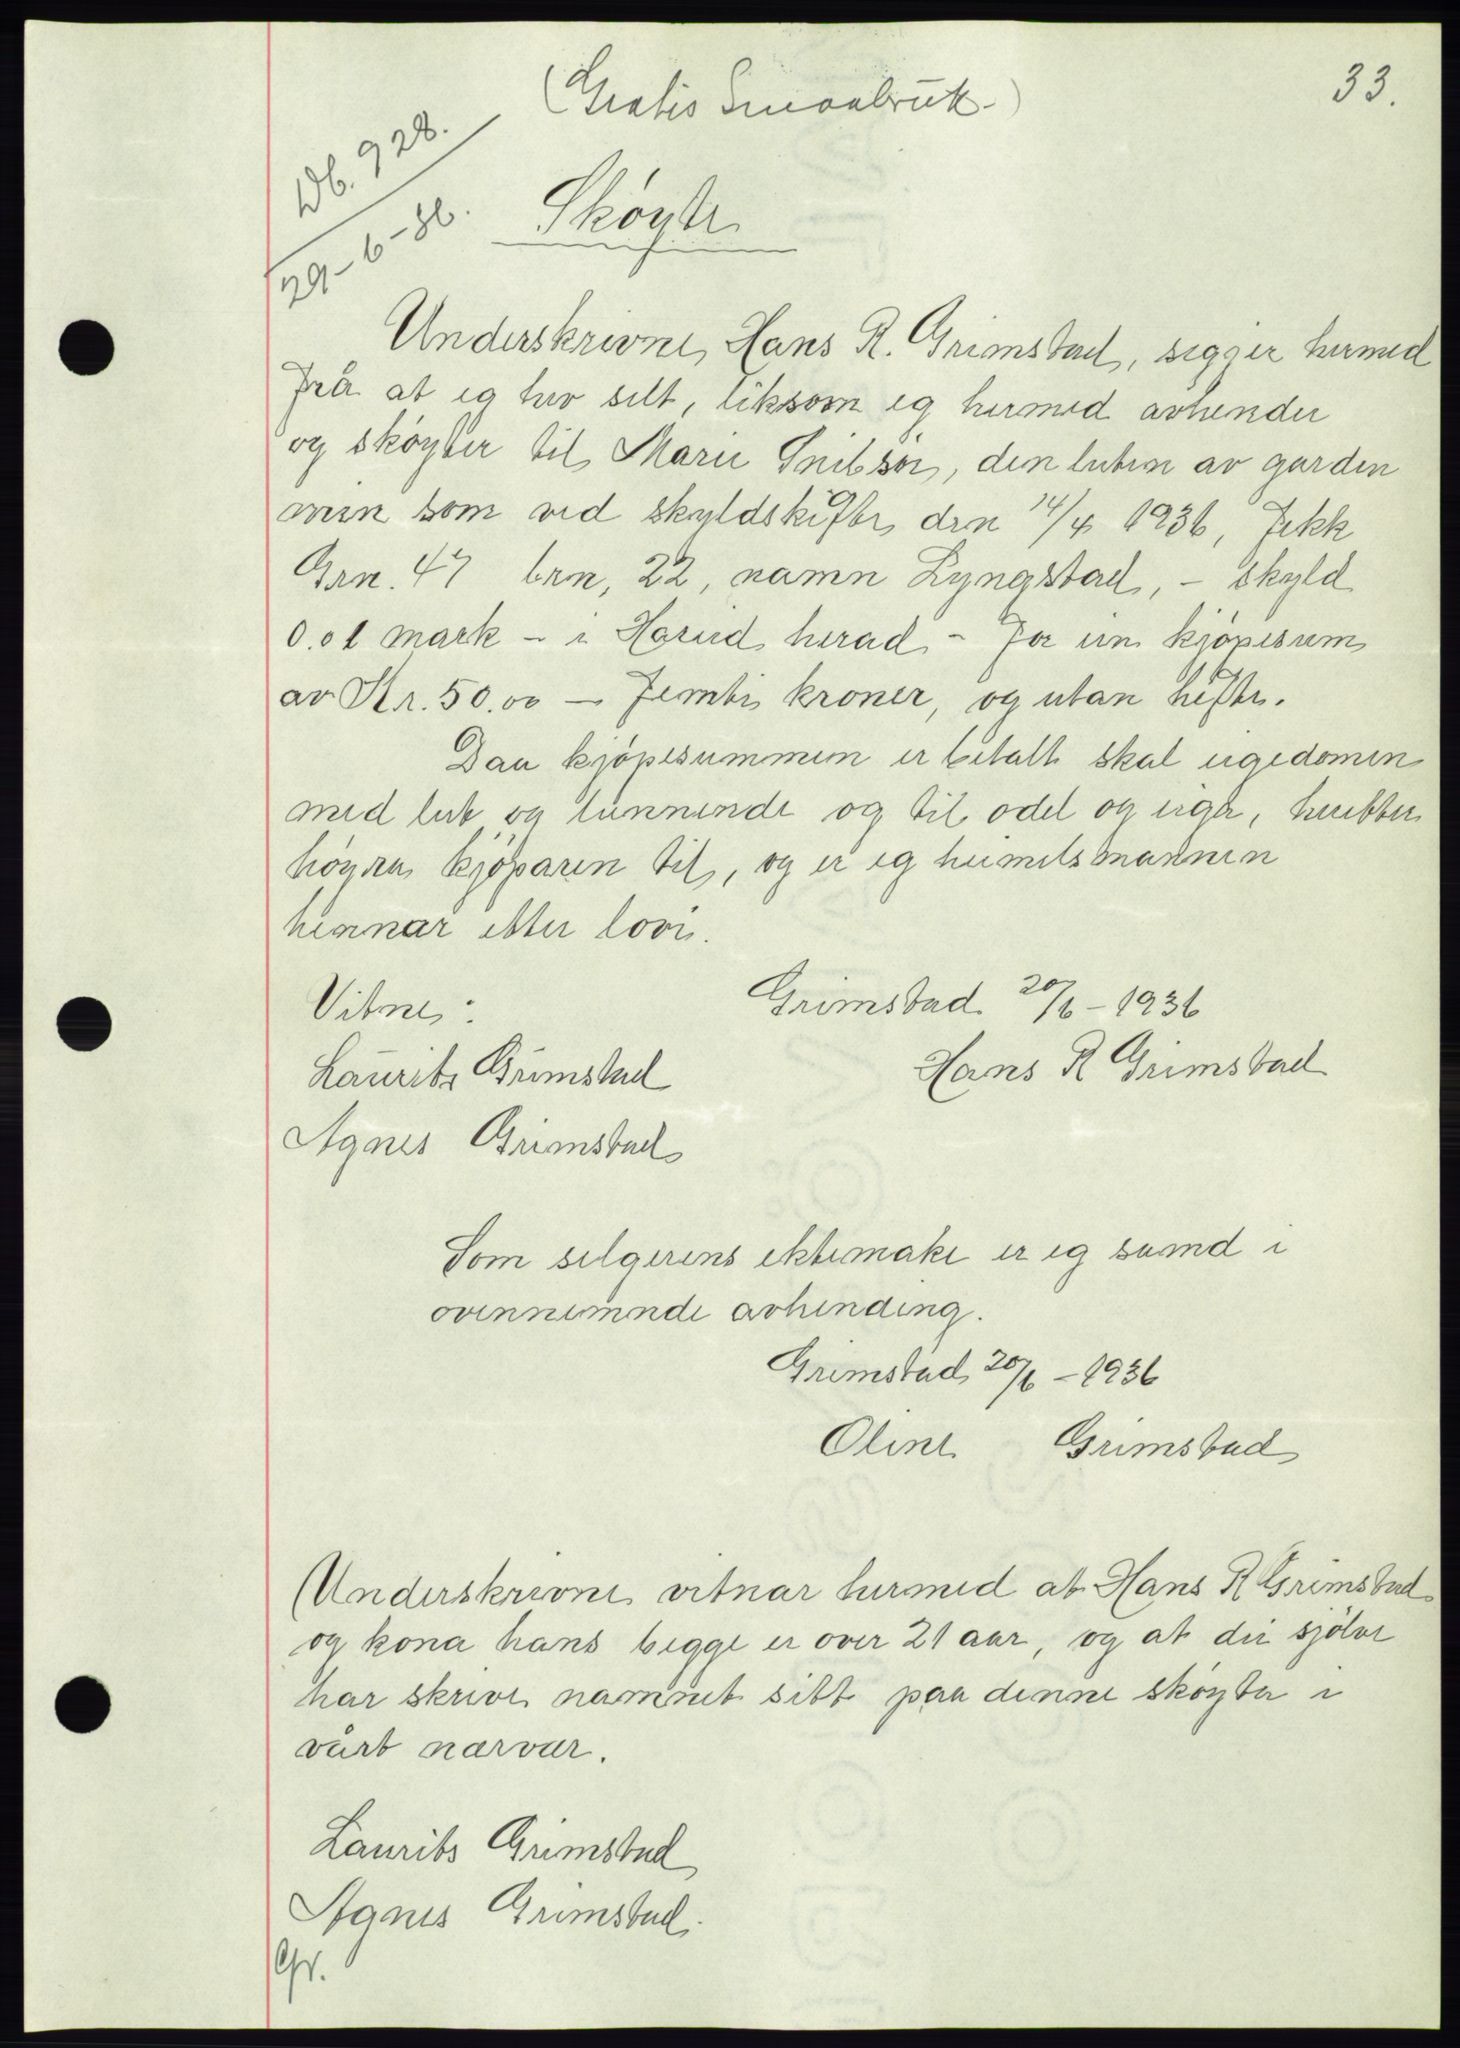 (Gratis Smaabruk.)
33.
Db. 928.
29-6-36.
Skøyte
Underskrivne, Hans R. Grimstad, segjer hermed
frå at eg hev selt, liksom eg hermed avhender
og skøyter til Marie Snibsör, den luten av garden
min som ved skyldskifte den 14/4 1936, fekk
Grn. 47 brn, 22, namn Lyngstad, - skyld
0.01 mark - i Hareid herad - for ein kjöpesum
av Kr. 50.00 - Femti kroner, og utan hefte.
Daa kjöpesummen er betalt skal eigedomen
med lut og lunnende og til odel og eige, heretter
höyra kjöparen til, og er eg heimelsmannen
hennar etter lovi.
Vitne:
Grimstad 20/6 - 1936
Laurits Grimstad
Hans R Grimstad
Agnes Grimstad
Som seljerens ektemake er eg samd i
ovennemnde avhending.
Grimstad 20/6 - 1936
Oline Grimstad
Underskrivne vitnar hermed at Hans R Grimstad
og kona hans begge er over 21 aar, og at dei sjölve
har skrive namnet sitt paa denne skøyta i
vårt nærvær.
Laurits Grimstad
Agnes Grimstad.